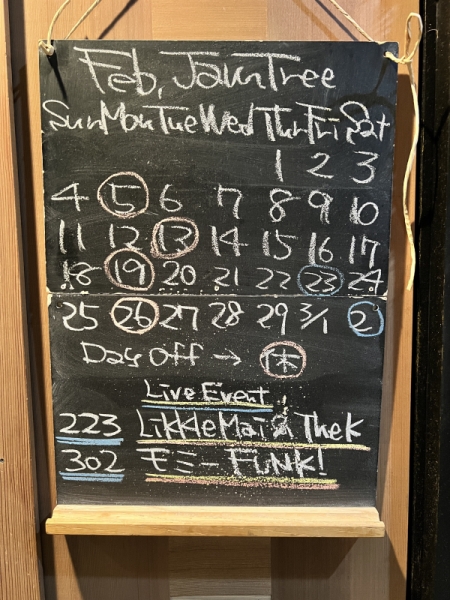 Feb, JamTree
Sun Mon Tue Wed Thur Fri Sat
1 2 3
4 5 6 7 8 9 10
11 12 13 14 15 16 17
18 19 20 21 22 23 24
25 26 27 28 29 3/1 2
Day off → 休
Live Event!
223 Likkle Mai & The K
302 モミー FUNK!